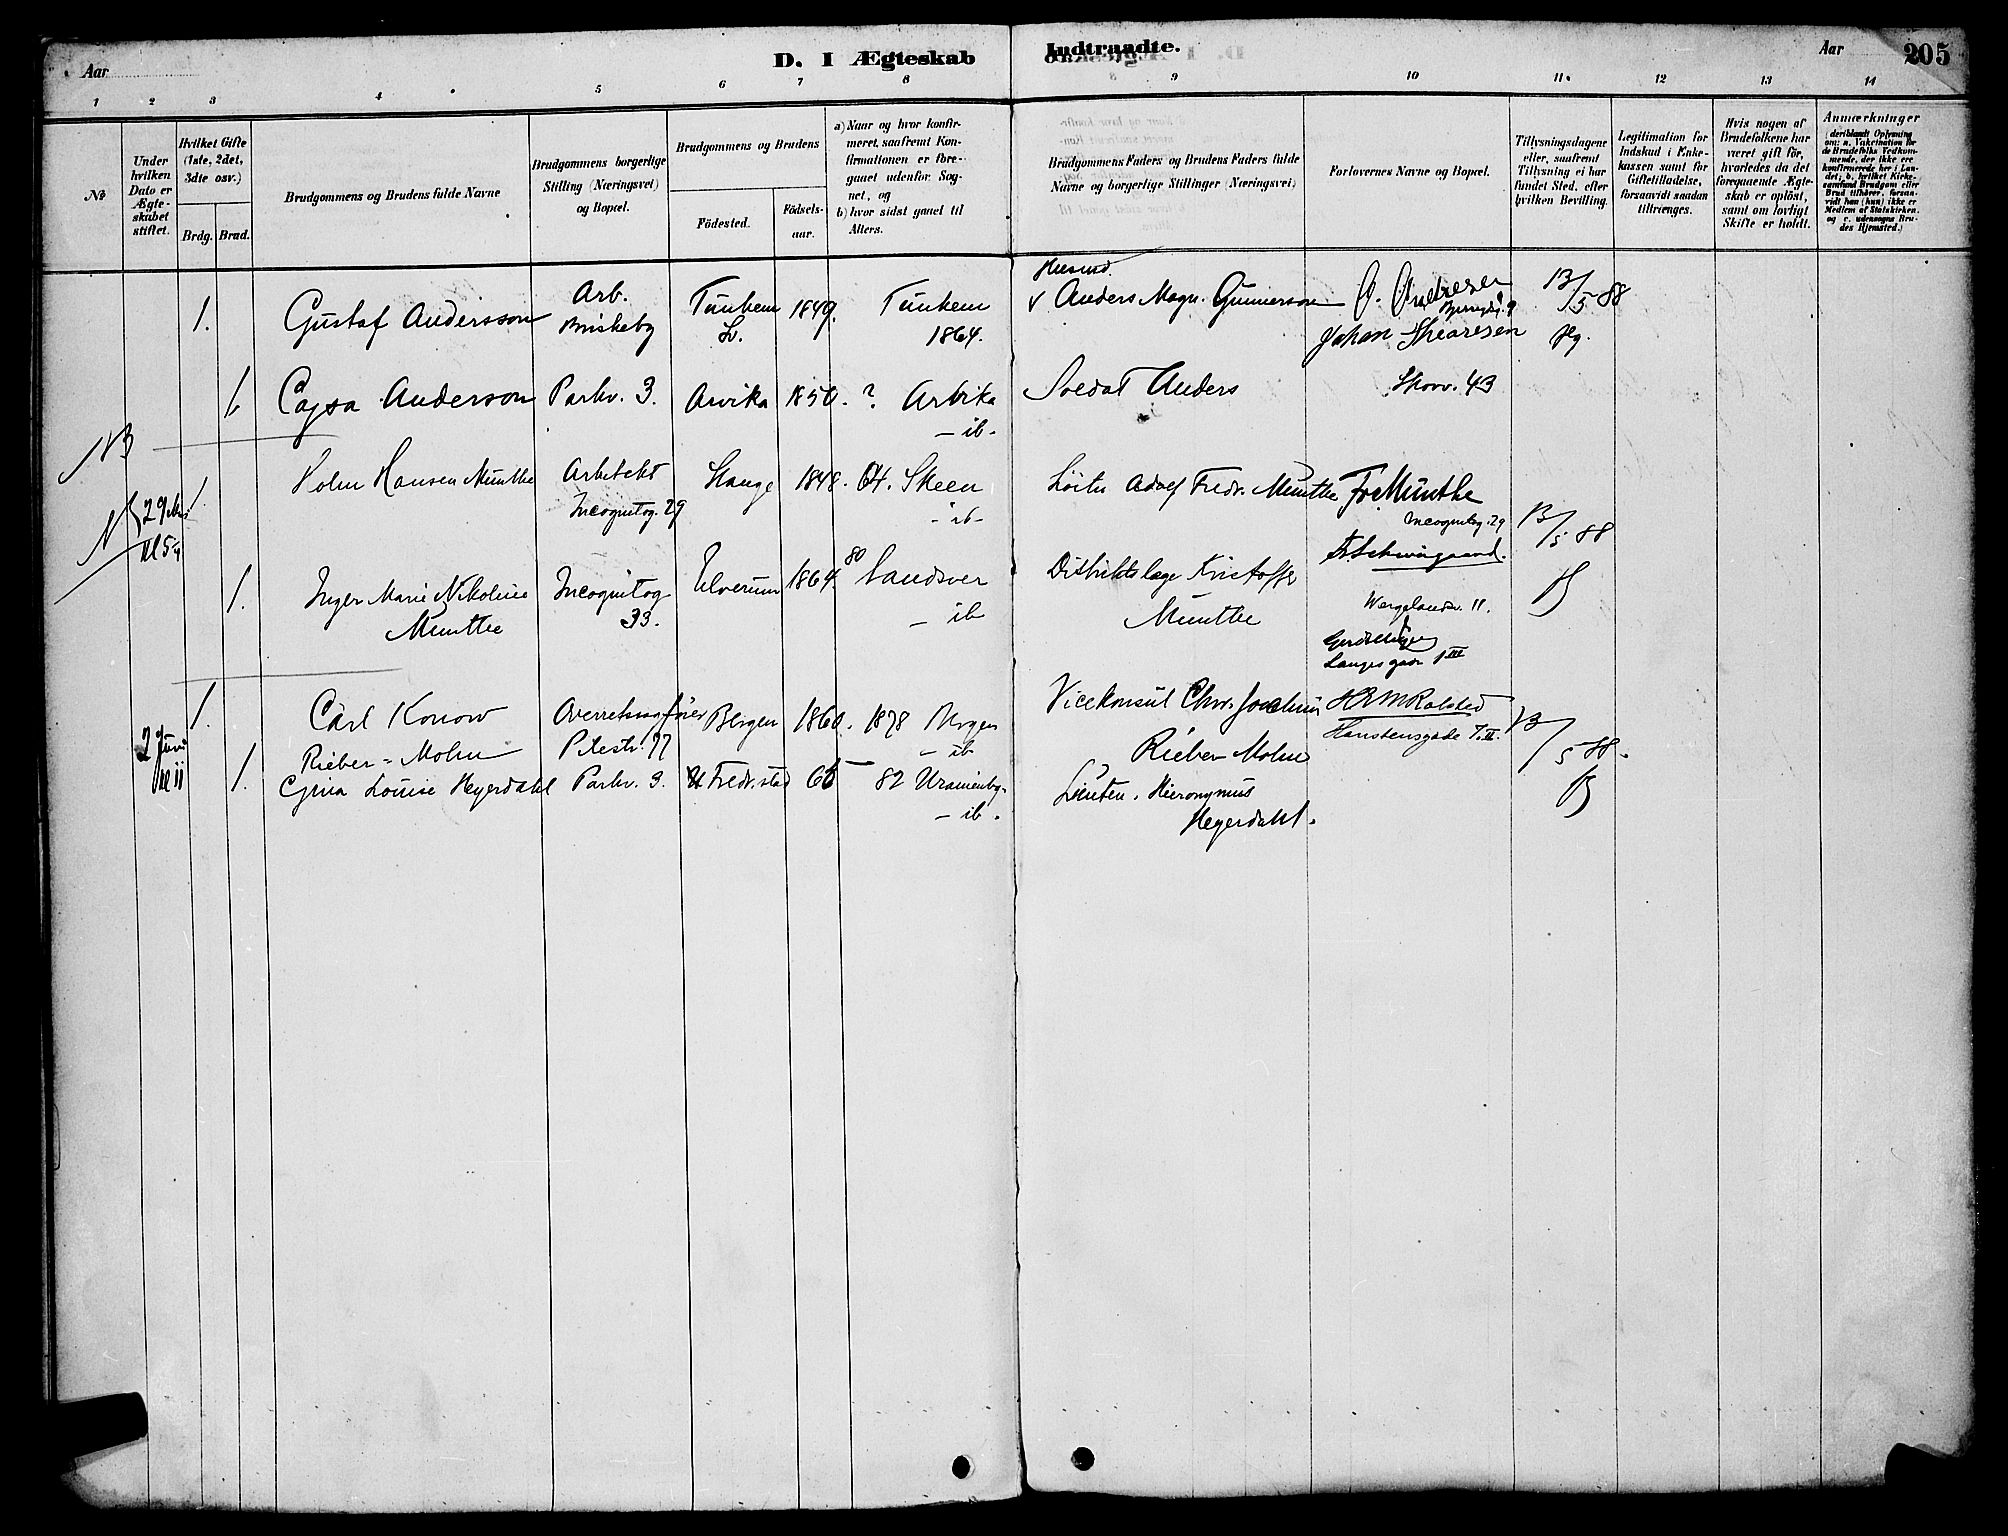 Aar
D. I Ægteskab
Indtraadte.
Aar
205
1 2 3 4 5 6 7 8 9 10 11. 12 13 14
No
Under hvilken Dato er Ægte-skabet stiftet.
Hvilket Gifte (1ste, 2det, 3die osv.)
Brdg. Brud.
Brudgommens og Brudens fulde Navne
Brudgommens borgerlige Stilling (Næringsvei) og Bopæl.
Brudgommens og Brudens
Födested.
Födsels-aar.
a) Naar og hvor konfir-meret, saafremt Kon-firmationen er fore-gaaet udenfor Sog-net, og
b) hvor sidst gaaet til Alters.
Brudgommens Faders og Brudens Faders fulde Navne og borgerlige Stillinger (Næringsvei)
Forlovernes Navne og Bopæl.
Tillysningsdagene eller, saafremt Tillysning ei har fundet Sted, efter hvilken Bevilling.
Legitimation for Indskud i Enke-kassen samt for Giftetilladelse, forsaavidt saadan tiltrænges.
Hvis nogen af Brudefolkene har været gift før, hvorledes da det foregaaende Ægte-skab er oplöst, samt om lovligt Skifte er holdt.
Anmærkninger
(deriblandt Oplysning om: a. Vakcination for de Brudefolks Vedkom-mende, der ikke ere konfirmerede her i Lan-det; b. hvilket Kirke-samfund Brudgom eller Brud tilhører, forsaa-vidt han (hun) ikke er Medlem af Statskirken, og c. udensogns Bru-des Hjemsted.)
1. Gustaf Andersson Arb. Briskeby Tunhem 1849. Tunhem 1864.
Husmd. Anders Magn. Gunnerson
O. Andresen
Johan Thoresen
13/5 88
1. Cajsa Anderson Parkv. 3. Arvika 1850. ? Arvika
- ib -
Soldat Anders
Skovv. 43
NB
1. Holm Hansen Munthe Arkitekt Stange 1848. 64. Skeen
Incognitog. 29
- ib -
Løitn Adolf Fredr. Munthe
Fr Munthe
Incognitog. 29
13/5 88
29 Mai
Kl 5¼
1. Inger Marie Nikoline Munthe
Incognitog 33.
Elverum 1864. 80 Sandsver
- ib
Distriktslæge Kristoffer Munthe
Fr Schwirgaard.
Wergelandsv. 11.
Langes gade 1 III
1. Carl Konow Rieber-Mohn
Overretssagfører Pilestr. 77
Bergen 1860. 1878 Bergen
- ib
Vicekonsul Chr. Joachim Rieber Mohn
H E M Rolsted
Hanstensgade 7. II.
13/5 88.
2 Juni
Kl ii
1. Gina Louise Heyerdahl Parkv. 3. Fredr. stad 66 82 Uranienbg.
- ib.
Løiten. Hieronymus Heyerdahl.